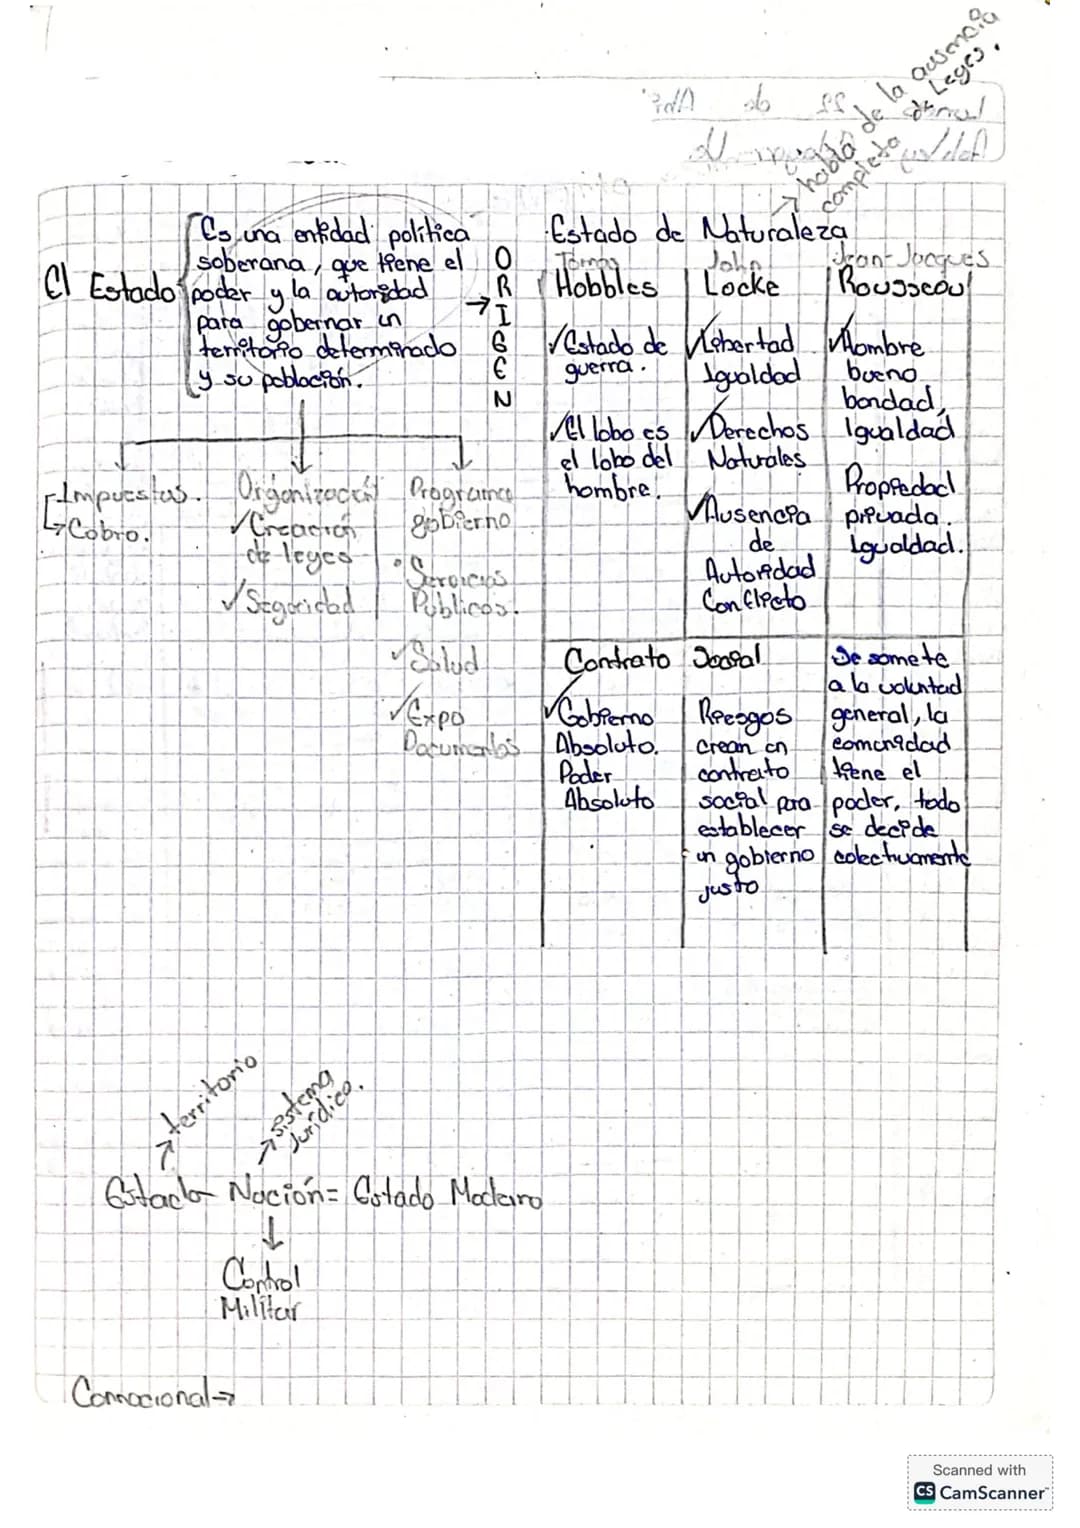 habla de la ausencia
completa de Leyes.
El Estado
Es una entidad política
soberana, que tiene el
poder y la autoridad
para gobernar un
territorio determinado
y su población.
ORIGEN
Impuestos.
Cobro.
Organización
Creación
de leyes
Seguridad
Programa
gobierno
Servicios
Publicos.
Salud
Expo
Documentos
Estado de Naturaleza
Tomas
Hobbles
Estado de
guerra.
El lobo es
el lobo del
hombre.
John
Locke
Libertad
Igualdad
Derechos
Naturales
Ausencia
de
Autoridad
Conflicto
Jean-Jacques
Rousseau
Hombre
bueno
bondad,
Igualdad
Propiedad
privada.
Igualdad.
Contrato Social
Gobierno
Absoluto.
Poder
Absoluto
Riesgos
crean un
contrato
social para
establecer
un gobierno
justo
Se somete
a la voluntad
general, la
comunidad
tiene el
poder, todo
se decide
colectivamente
territorio
sistema
Jurídico.
Estado Nación = Estado Moderno
Control
Militar
Connacional
Scanned with
CS CamScanner